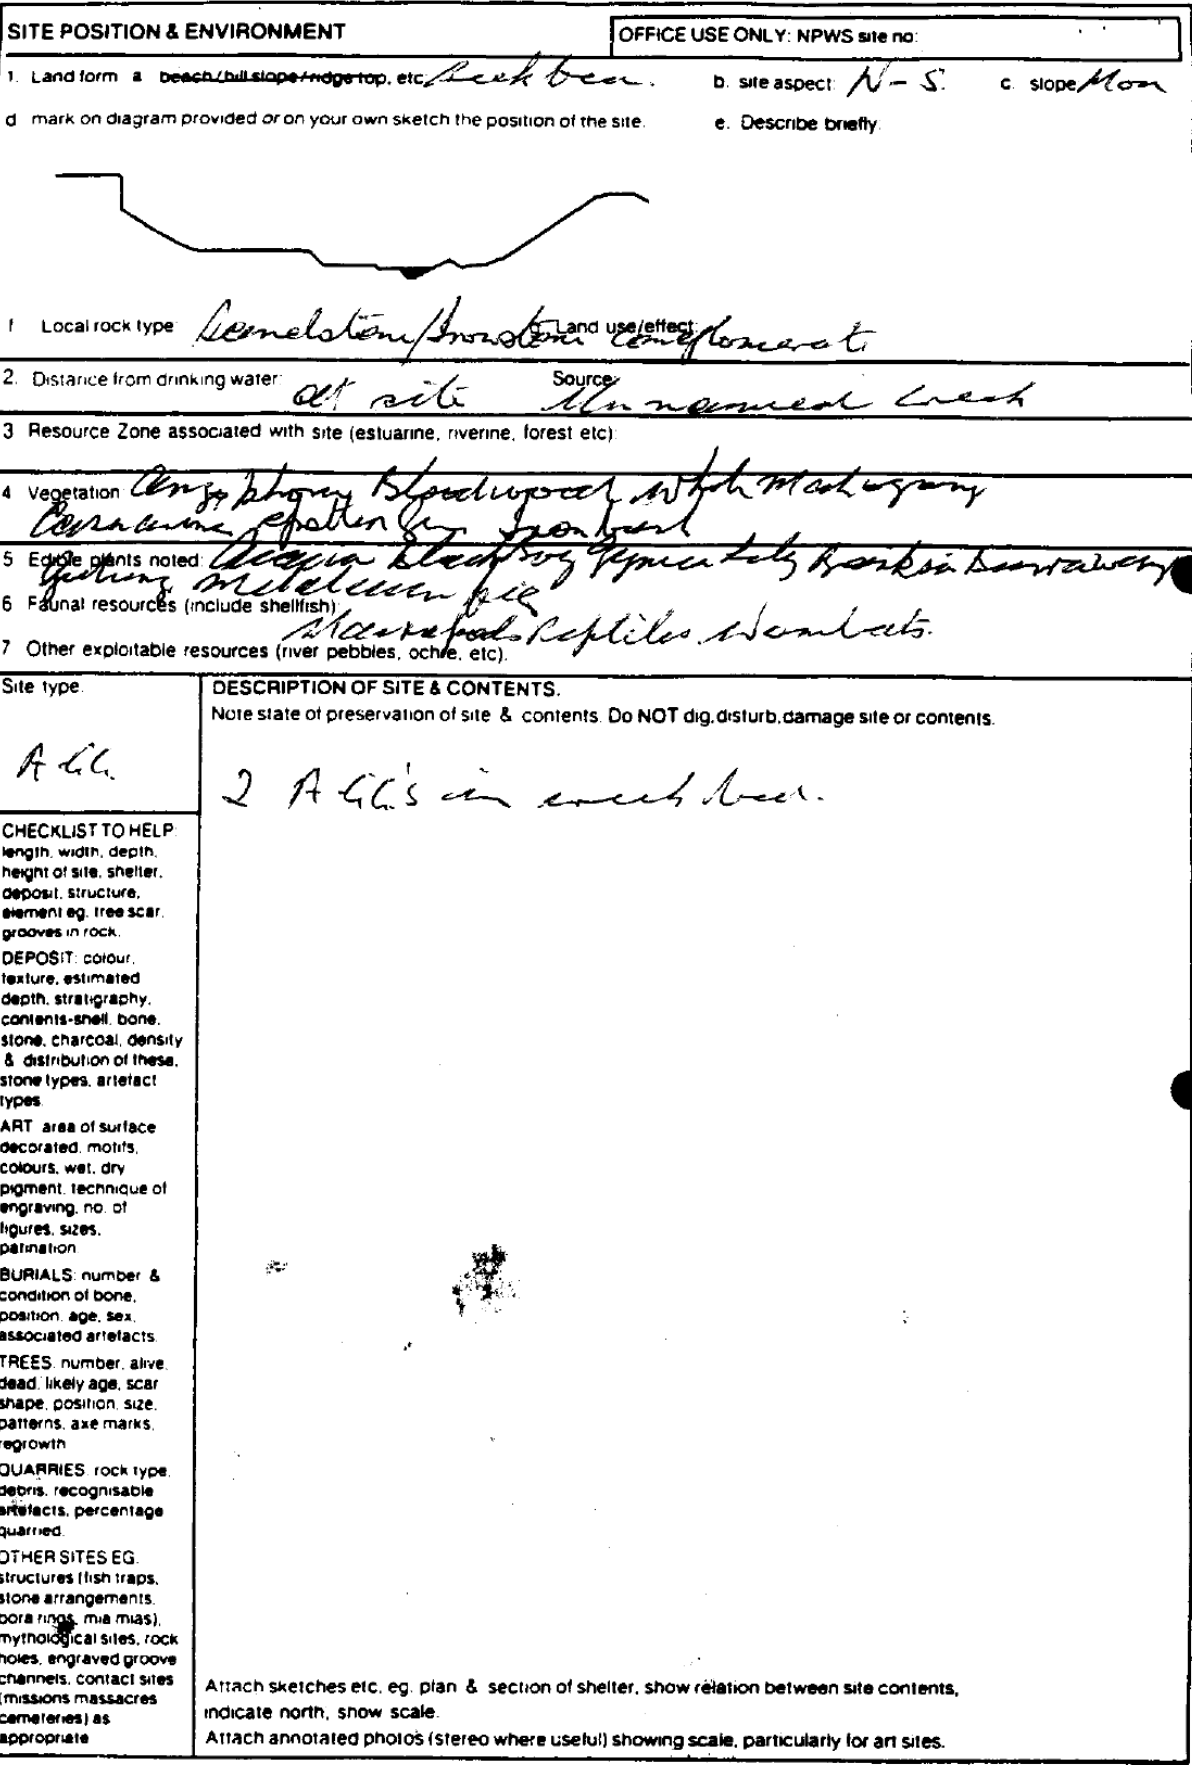 SITE POSITION & ENVIRONMENT
OFFICE USE ONLY: NPWS site no:
1. Land form a beach/hill slope/ridge top, etc creek bed. b. site aspect: N - S. c. slope
d mark on diagram provided or on your own sketch the position of the site. e. Describe briefly.
f Local rock type: Sandstone/Ironstone conglomerate Land use/effect:
2. Distance from drinking water: at site Source: Unnamed Creek
3 Resource Zone associated with site (estuarine, riverine, forest etc):
4 Vegetation: Angophora Bloodwood White Mahogany
Ironbark
5 Edible plants noted: Acacia Blackboy Gymea Lily Banksia Burrawang
6 Faunal resources (include shellfish):
Macropods Reptiles Wombats.
7 Other exploitable resources (river pebbles, ochre, etc).
Site type.
A.G.G.
DESCRIPTION OF SITE & CONTENTS.
Note state of preservation of site & contents. Do NOT dig,disturb,damage site or contents.
2 A.G.G.'s in creek bed.
CHECKLIST TO HELP:
length, width, depth,
height of site, shelter,
deposit, structure,
element eg. tree scar,
grooves in rock.
DEPOSIT: colour,
texture, estimated
depth, stratigraphy,
contents-shell, bone,
stone, charcoal, density
& distribution of these,
stone types, artefact
types.
ART area of surface
decorated, motifs,
colours, wet, dry
pigment, technique of
engraving, no. of
figures, sizes,
patination.
BURIALS: number &
condition of bone,
position, age, sex,
associated artefacts.
TREES. number, alive,
dead, likely age, scar
shape, position, size,
patterns, axe marks,
regrowth
QUARRIES. rock type,
debris, recognisable
artefacts, percentage
quarried.
OTHER SITES EG.
structures (fish traps,
stone arrangements,
bora rings, mia mias),
mythological sites, rock
holes, engraved groove
channels, contact sites
(missions massacres
cemeteries) as
appropriate
Attach sketches etc, eg. plan & section of shelter, show relation between site contents,
indicate north, show scale.
Attach annotated photos (stereo where useful) showing scale, particularly for art sites.